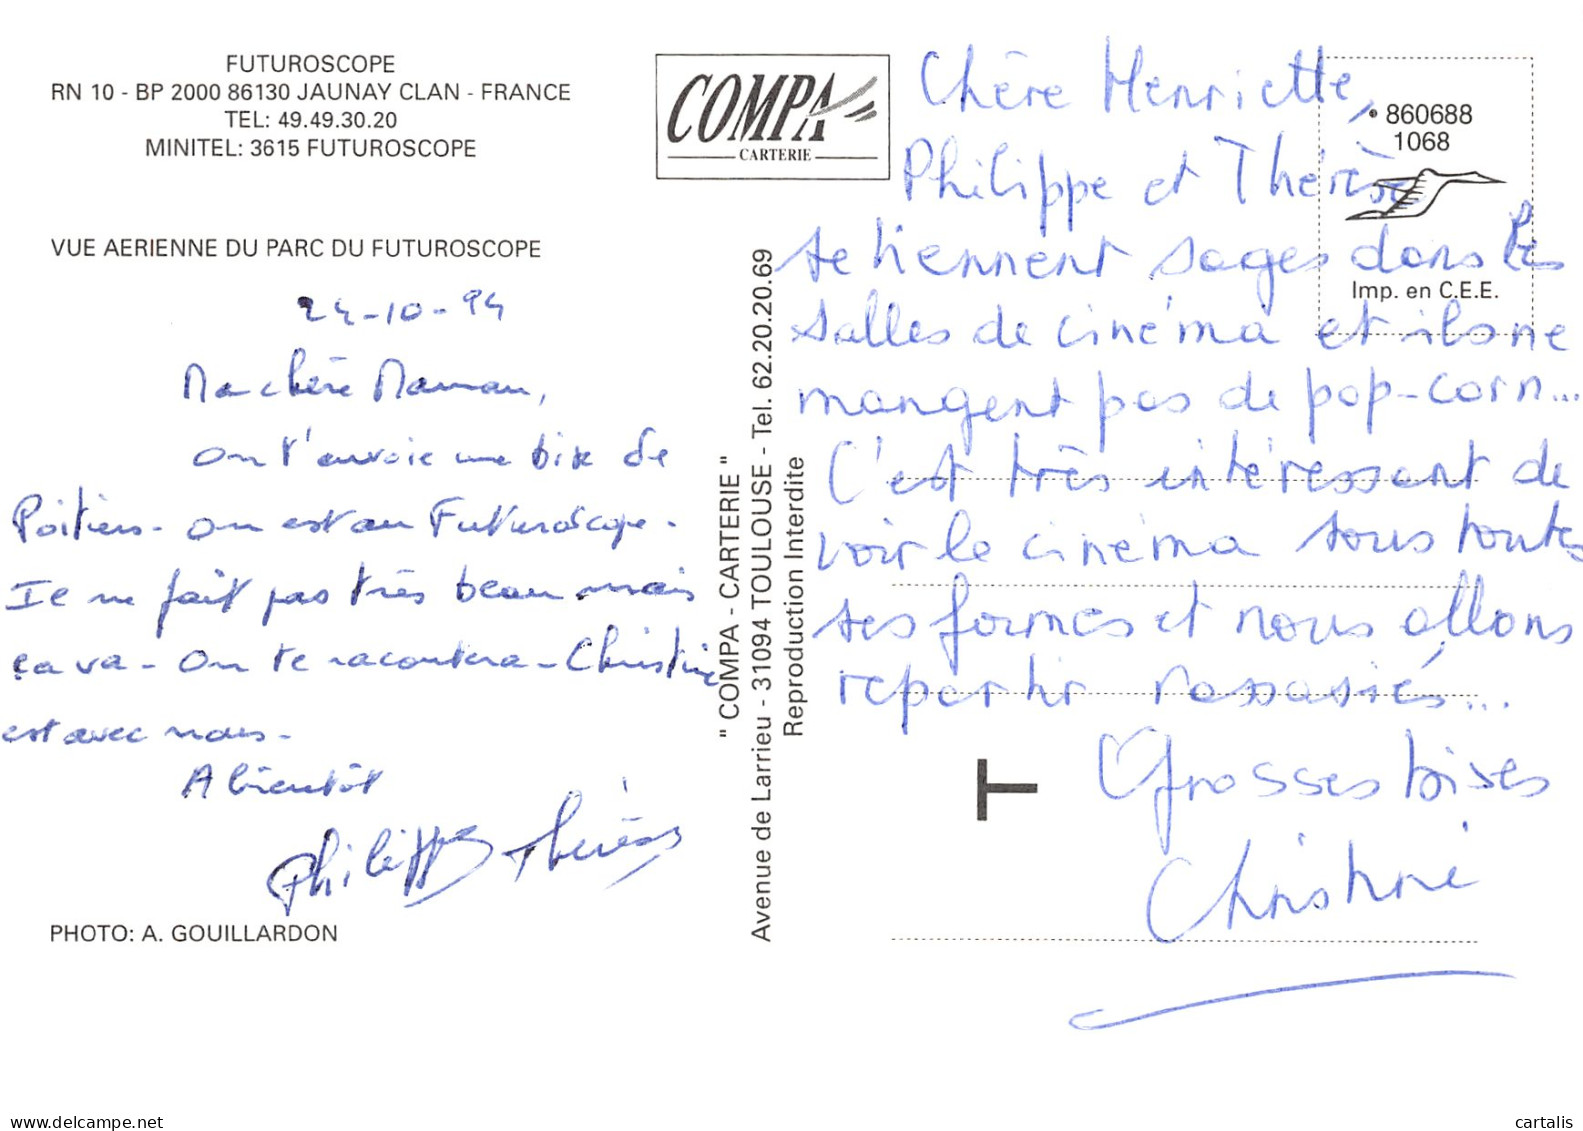 FUTUROSCOPE
RN 10 - BP 2000 86130 JAUNAY CLAN - FRANCE
TEL: 49.49.30.20
MINITEL: 3615 FUTUROSCOPE
VUE AERIENNE DU PARC DU FUTUROSCOPE
24-10-94
Ma chère Maman,
On t'envoie une bise de
Poitiers - on est au Futuroscope -
Il ne fait pas très beau mais
ça va - On te racontera - Christine
est avec nous -
A bientôt
Philippe Thérèse
PHOTO: A. GOUILLARDON
COMPA
CARTERIE
" COMPA - CARTERIE "
Avenue de Larrieu - 31094 TOULOUSE - Tel. 62.20.20.69
Reproduction Interdite
860688
1068
Imp. en C.E.E.
Chère Henriette,
Philippe et Thérèse
se tiennent sages dans les
salles de cinéma et ils ne
mangent pas de pop-corn...
C'est très intéressant de
voir le cinéma sous toutes
ses formes et nous allons
repartir rassasiés...
Grosses bises
Christine
delcampe.net
cartalis